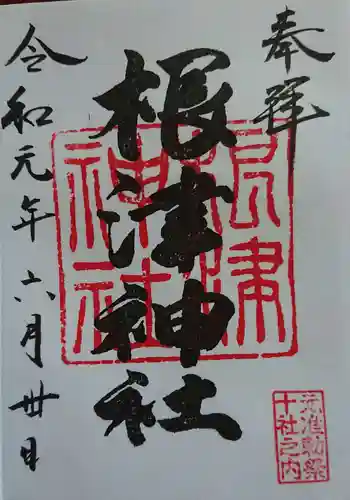 奉拝
根津神社
令和元年六月卅日
根津神社
元准勅祭
十社之内